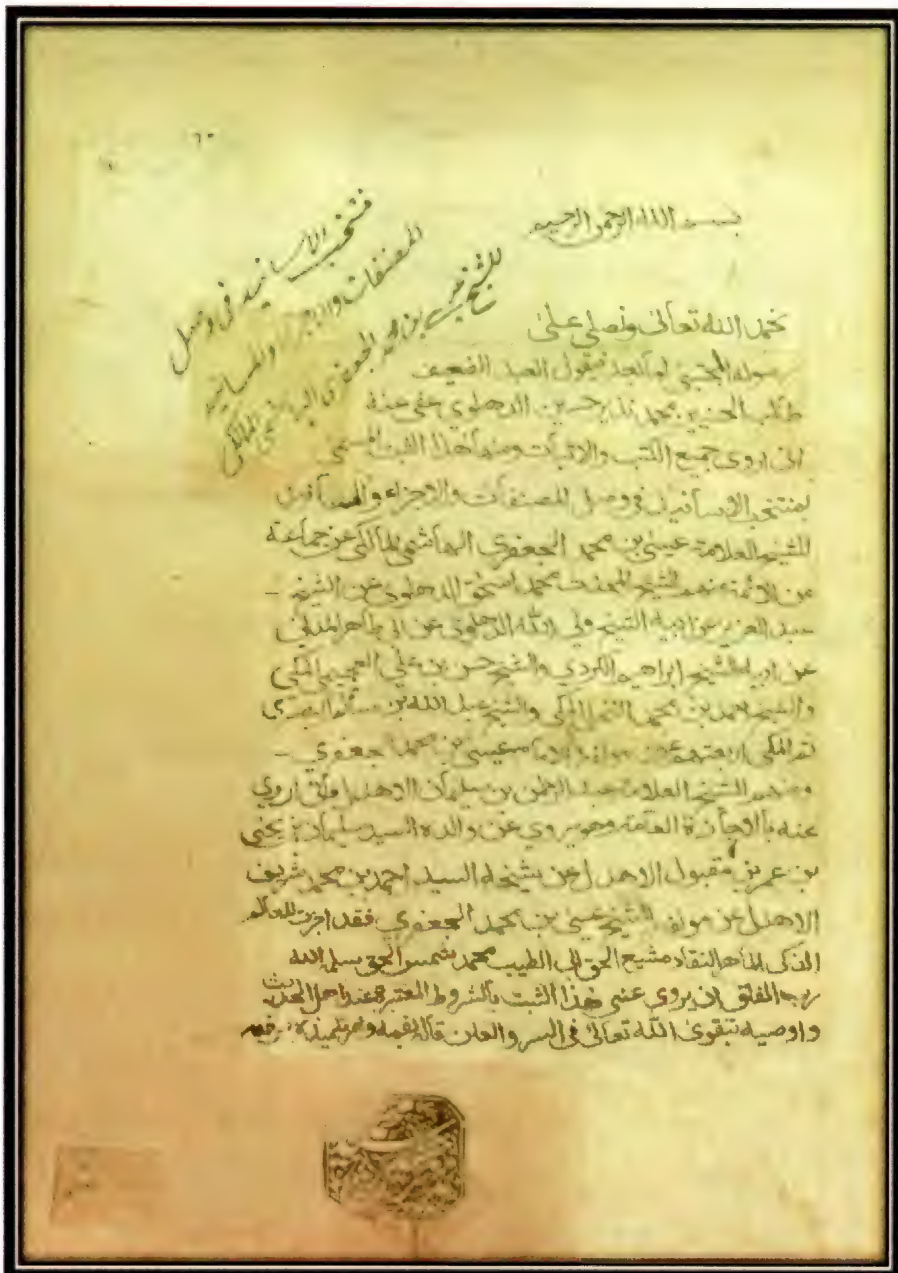 ٦٠
بسم الله الرحمن الرحيم
منتخب الأسانيد فى وصل
المصنفات والاجزاء والمسانيد
للشيخ عيسى بن محمد الجعفرى الهاشمى المالكى
نحمد الله تعالى ونصلي على
رسوله المجتبى اما بعد فيقول العبد الضعيف
طالب الحسنين محمد نذير حسين الدهلوي عفي عنه
انى اروى جميع الكتب والاثبات ومنها هذا الثبت المسمى
بمنتخب الاسانيد فى وصل المصنفات والاجزاء والمسانيد
للشيخ العلامة عيسى بن محمد الجعفري الهاشمي المالكى عن جماعة
من الائمة منهم الشيخ المحدث محمد اسحق الدهلوي عن الشيخ -
عبد العزيز عن ابيه الشيخ ولي الله الدهلوى عن ابى طاهر المدنى
عن ابيه الشيخ ابراهيم الكردي والشيخ حسن بن علي العجيمي المكى
والشيخ احمد بن محمد النخلى المكى والشيخ عبد الله بن سالم البصرى
ثم المكى اربعتهم عن مولفه الامام عيسى بن محمد الجعفري -
ومنهم الشيخ العلامة عبد الرحمن بن سليمان الاهدل فانى اروي
عنه بالاجازة العامة وهو يروي عن والده السيد سليمان بن يحيى
بن عمر بن مقبول الاهدل عن شيخه السيد احمد بن محمد شريف
الاهدل عن مولفه الشيخ عيسى بن محمد الجعفري فقد اجزت للعالم
الذكى الماهر النقاد مشيع الحق ابى الطيب محمد شمس الحق سلمه الله
ربه الفلق ان يروي عنى هذا الثبت بالشروط المعتبرة عند اهل الحديث
واوصيه بتقوى الله تعالى فى السر والعلن قاله بفمه وامر تلميذه برقمه